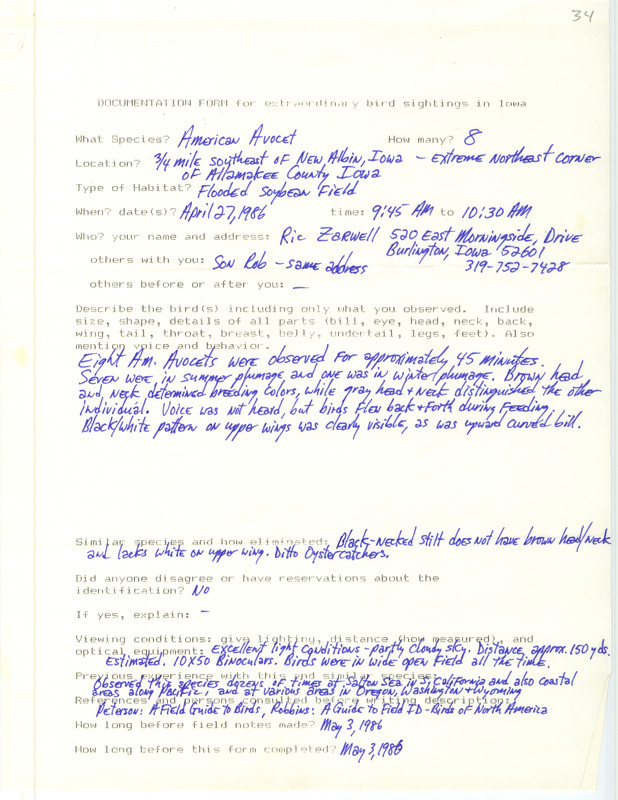 34
DOCUMENTATION FORM for extraordinary bird sightings in Iowa
What Species? American Avocet How many? 8
Location? 3/4 mile southeast of New Albin, Iowa - Extreme Northeast corner
of Allamakee County Iowa
Type of Habitat? Flooded Soybean Field
When? date(s)? April 27, 1986 time: 9:45 AM to 10:30 AM
Who? your name and address: Ric Zarwell 520 East Morningside, Drive
Burlington, Iowa 52601
others with you: Son Rob - same address 319-752-7428
others before or after you: —
Describe the bird(s) including only what you observed. Include
size, shape, details of all parts (bill, eye, head, neck, back,
wing, tail, throat, breast, belly, undertail, legs, feet). Also
mention voice and behavior.
Eight Am. Avocets were observed for approximately 45 minutes.
Seven were in summer plumage and one was in winter plumage. Brown head
and neck determined breeding colors, while gray head + neck distinguished the other
individual. Voice was not heard, but birds flew back + forth during feeding.
Black/white pattern on upper wings was clearly visible, as was upward curved bill.
Similar species and how eliminated: Black-necked stilt does not have brown head/neck
and lacks white on upper wing. Ditto Oystercatchers.
Did anyone disagree or have reservations about the
identification? No
If yes, explain: -
Viewing conditions: give lighting, distance (how measured), and
optical equipment: Excellent light conditions - partly cloudy sky. Distance approx. 150 yds.
Estimated. 10X50 Binoculars. Birds were in wide open field all the time.
Previous experience with this and similar species:
Observed this species dozens of times at Salton Sea in S. California and also coastal
areas along Pacific, and at various areas in Oregon, Washington + Wyoming
References and persons consulted before writing description:
Peterson: A Field Guide to Birds, Robbins: A Guide to Field ID - Birds of North America
How long before field notes made? May 3, 1986
How long before this form completed? May 3, 1986